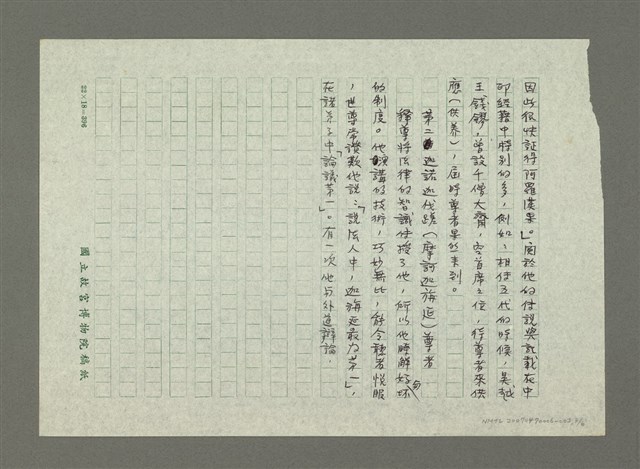 因此很快証得阿羅漢果」。關於他的传説與記載在中
印經籍中特別的多，例如：相传五代的時候，吳越
王錢鏐，曾設千僧大齋，空首席之位，待尊者來供
應（供养），屆時尊者果然来到。
第二 迦諾迦伐蹉（摩訶迦旃延）尊者
釋尊將法律的智識传授了他，所以他暸解好坏
的制度。他演講的技術，巧妙無比，能令聽者悦服
，世尊常讚歎他説：「説法人中，迦旃延最为第一」，
在諸弟子中「論議第一」。有一次他与外道辯論，
國立故宮博物院稿紙